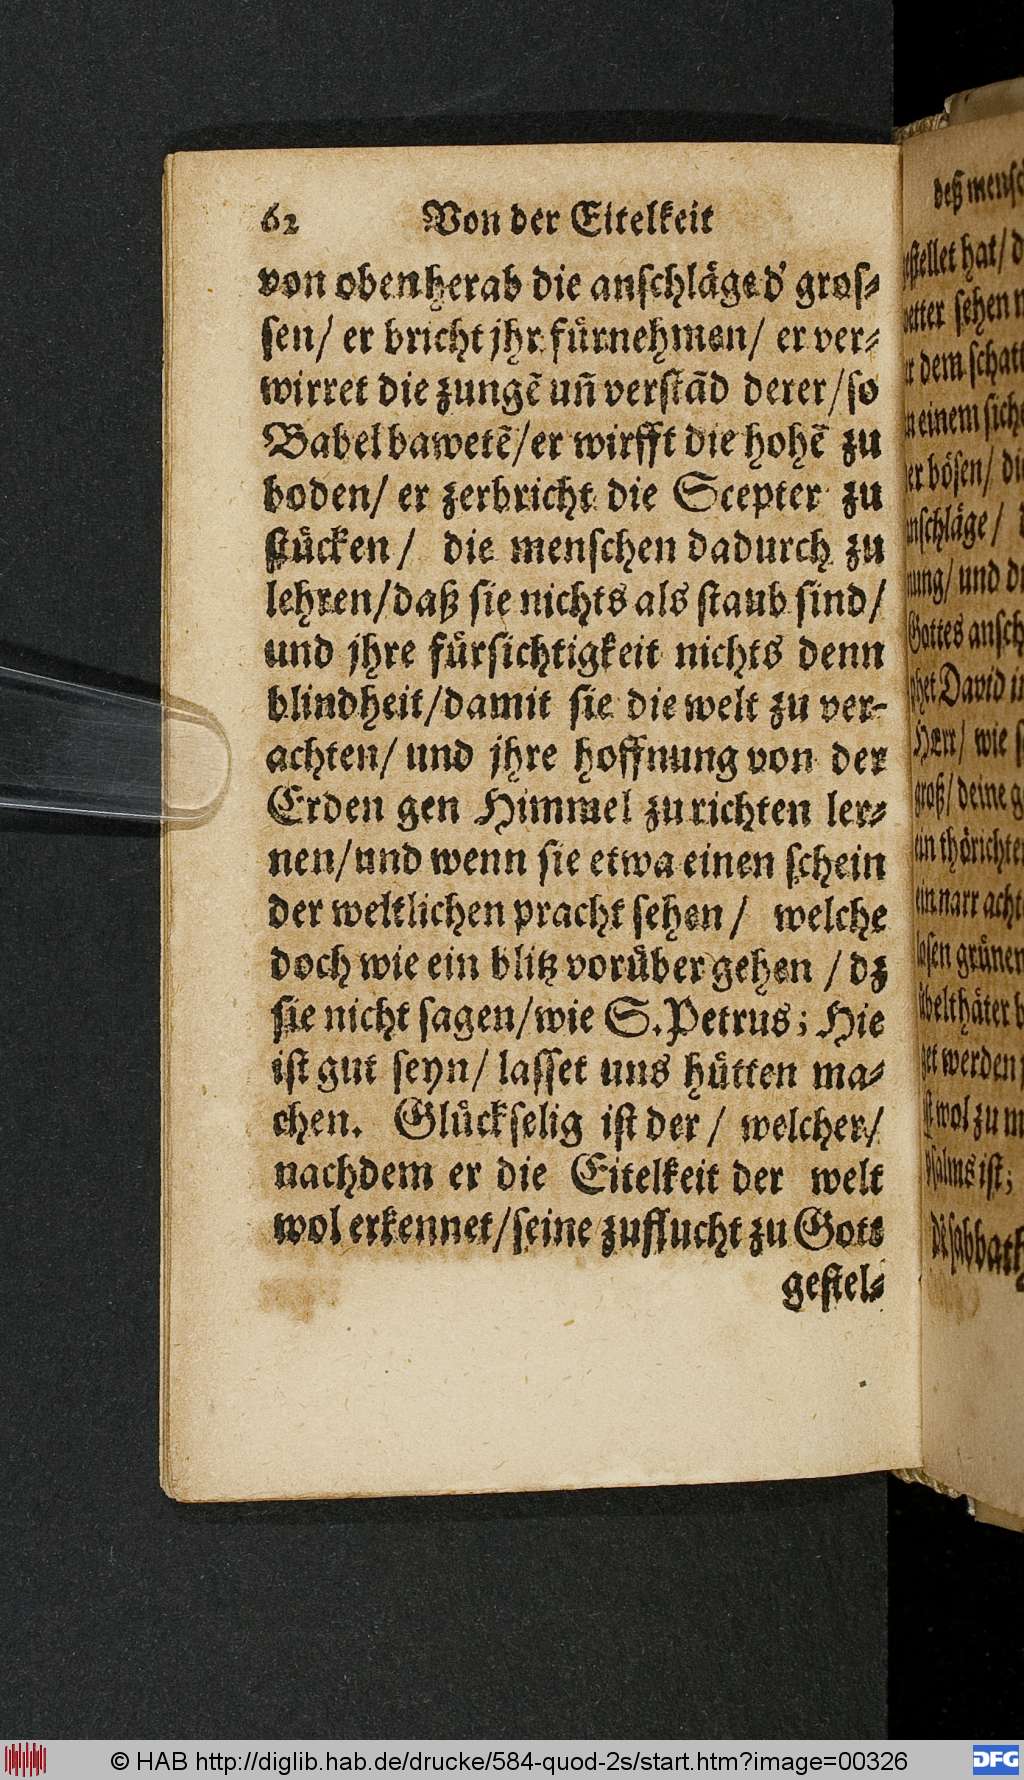 62 Von der Eitelkeit
von oben herab die anschläge d' gros-
sen/ er bricht jhr fürnehmen/ er ver-
wirret die zungē uñ verstād derer/so
Babel bawetē/er wirfft die hohē zu
boden/ er zerbricht die Scepter zu
stücken/ die menschen dadurch zu
lehren/daß sie nichts als staub sind/
und jhre fürsichtigkeit nichts denn
blindheit/damit sie die welt zu ver-
achten/ und jhre hoffnung von der
Erden gen Himmel zu richten ler-
nen/und wenn sie etwa einen schein
der weltlichen pracht sehen/ welche
doch wie ein blitz vorüber gehen /dz
sie nicht sagen/wie S. Petrus; Hie
ist gut seyn/ lasset uns hütten ma-
chen. Glückselig ist der/ welcher/
nachdem er die Eitelkeit der welt
wol erkennet/seine zuflucht zu Gott
gestel-
deß mensc
gestellet hat/ d
sehen
dem schatt
einem siche
bösen/ di
anschläge/
und d
Gottes ansch
David i
Herr/ wie s
groß/ deine g
ein thörichte
ein narr acht
grünen
übelthäter b
werden
wol zu m
psalms ist;
sabbath
© HAB http://diglib.hab.de/drucke/584-quod-2s/start.htm?image=00326
DFG